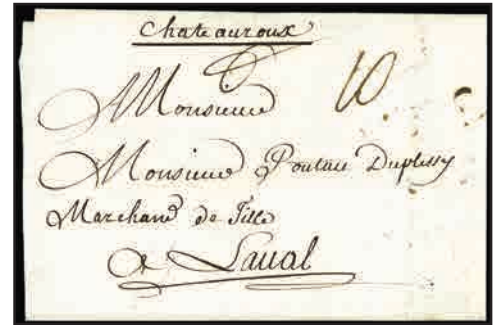 Chateauroux
10
Monsieur
Monsieur Duplessy
Marchand de Tille
a Laval